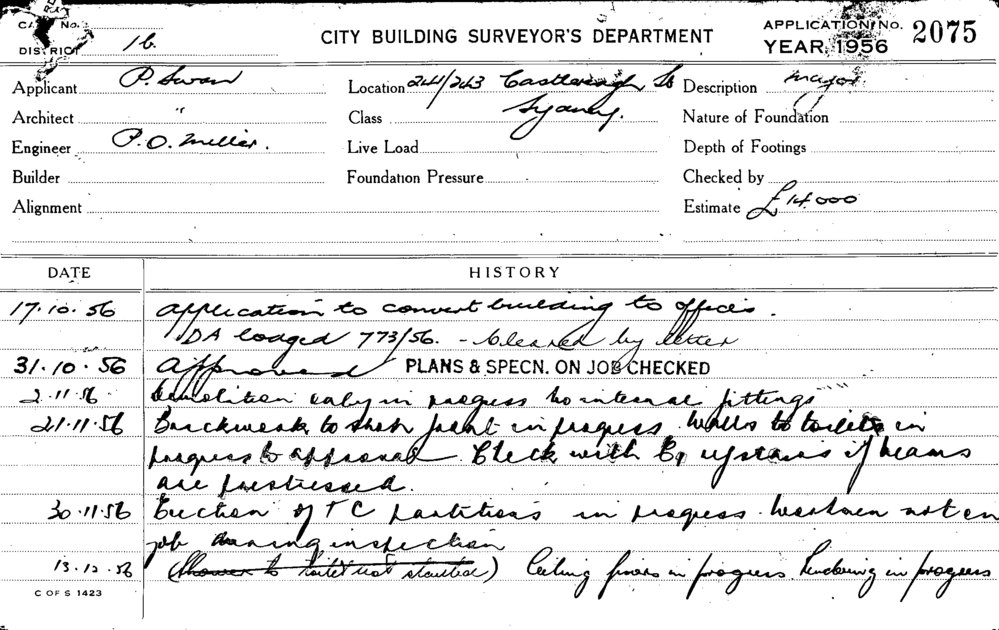 No.
DISTRICT 1b.
CITY BUILDING SURVEYOR'S DEPARTMENT
APPLICATION No. 2075
YEAR, 1956
Applicant P. Swan
Location 241/243 Castlereagh St
Sydney.
Description major
Architect "
Class
Nature of Foundation
Engineer P. O. Miller.
Live Load
Depth of Footings
Builder
Foundation Pressure
Checked by
Alignment
Estimate £14.000
DATE HISTORY
17.10.56 Application to convert building to offices.
DA lodged 773/56. - cleared by letter
31.10.56 Approved PLANS & SPECN. ON JOB CHECKED
2.11.56 Demolition only in progress no internal fittings
21.11.56 Brickwork to shop front in progress. Walls to toilets in
progress to approval. Check with upstairs if beams
are prestressed.
30.11.56 Erection of TC partitions in progress. Workmen not on
job during inspection
13.12.56 (Shower to toilet not started) Ceiling in progress. Rendering in progress
C OF S 1423